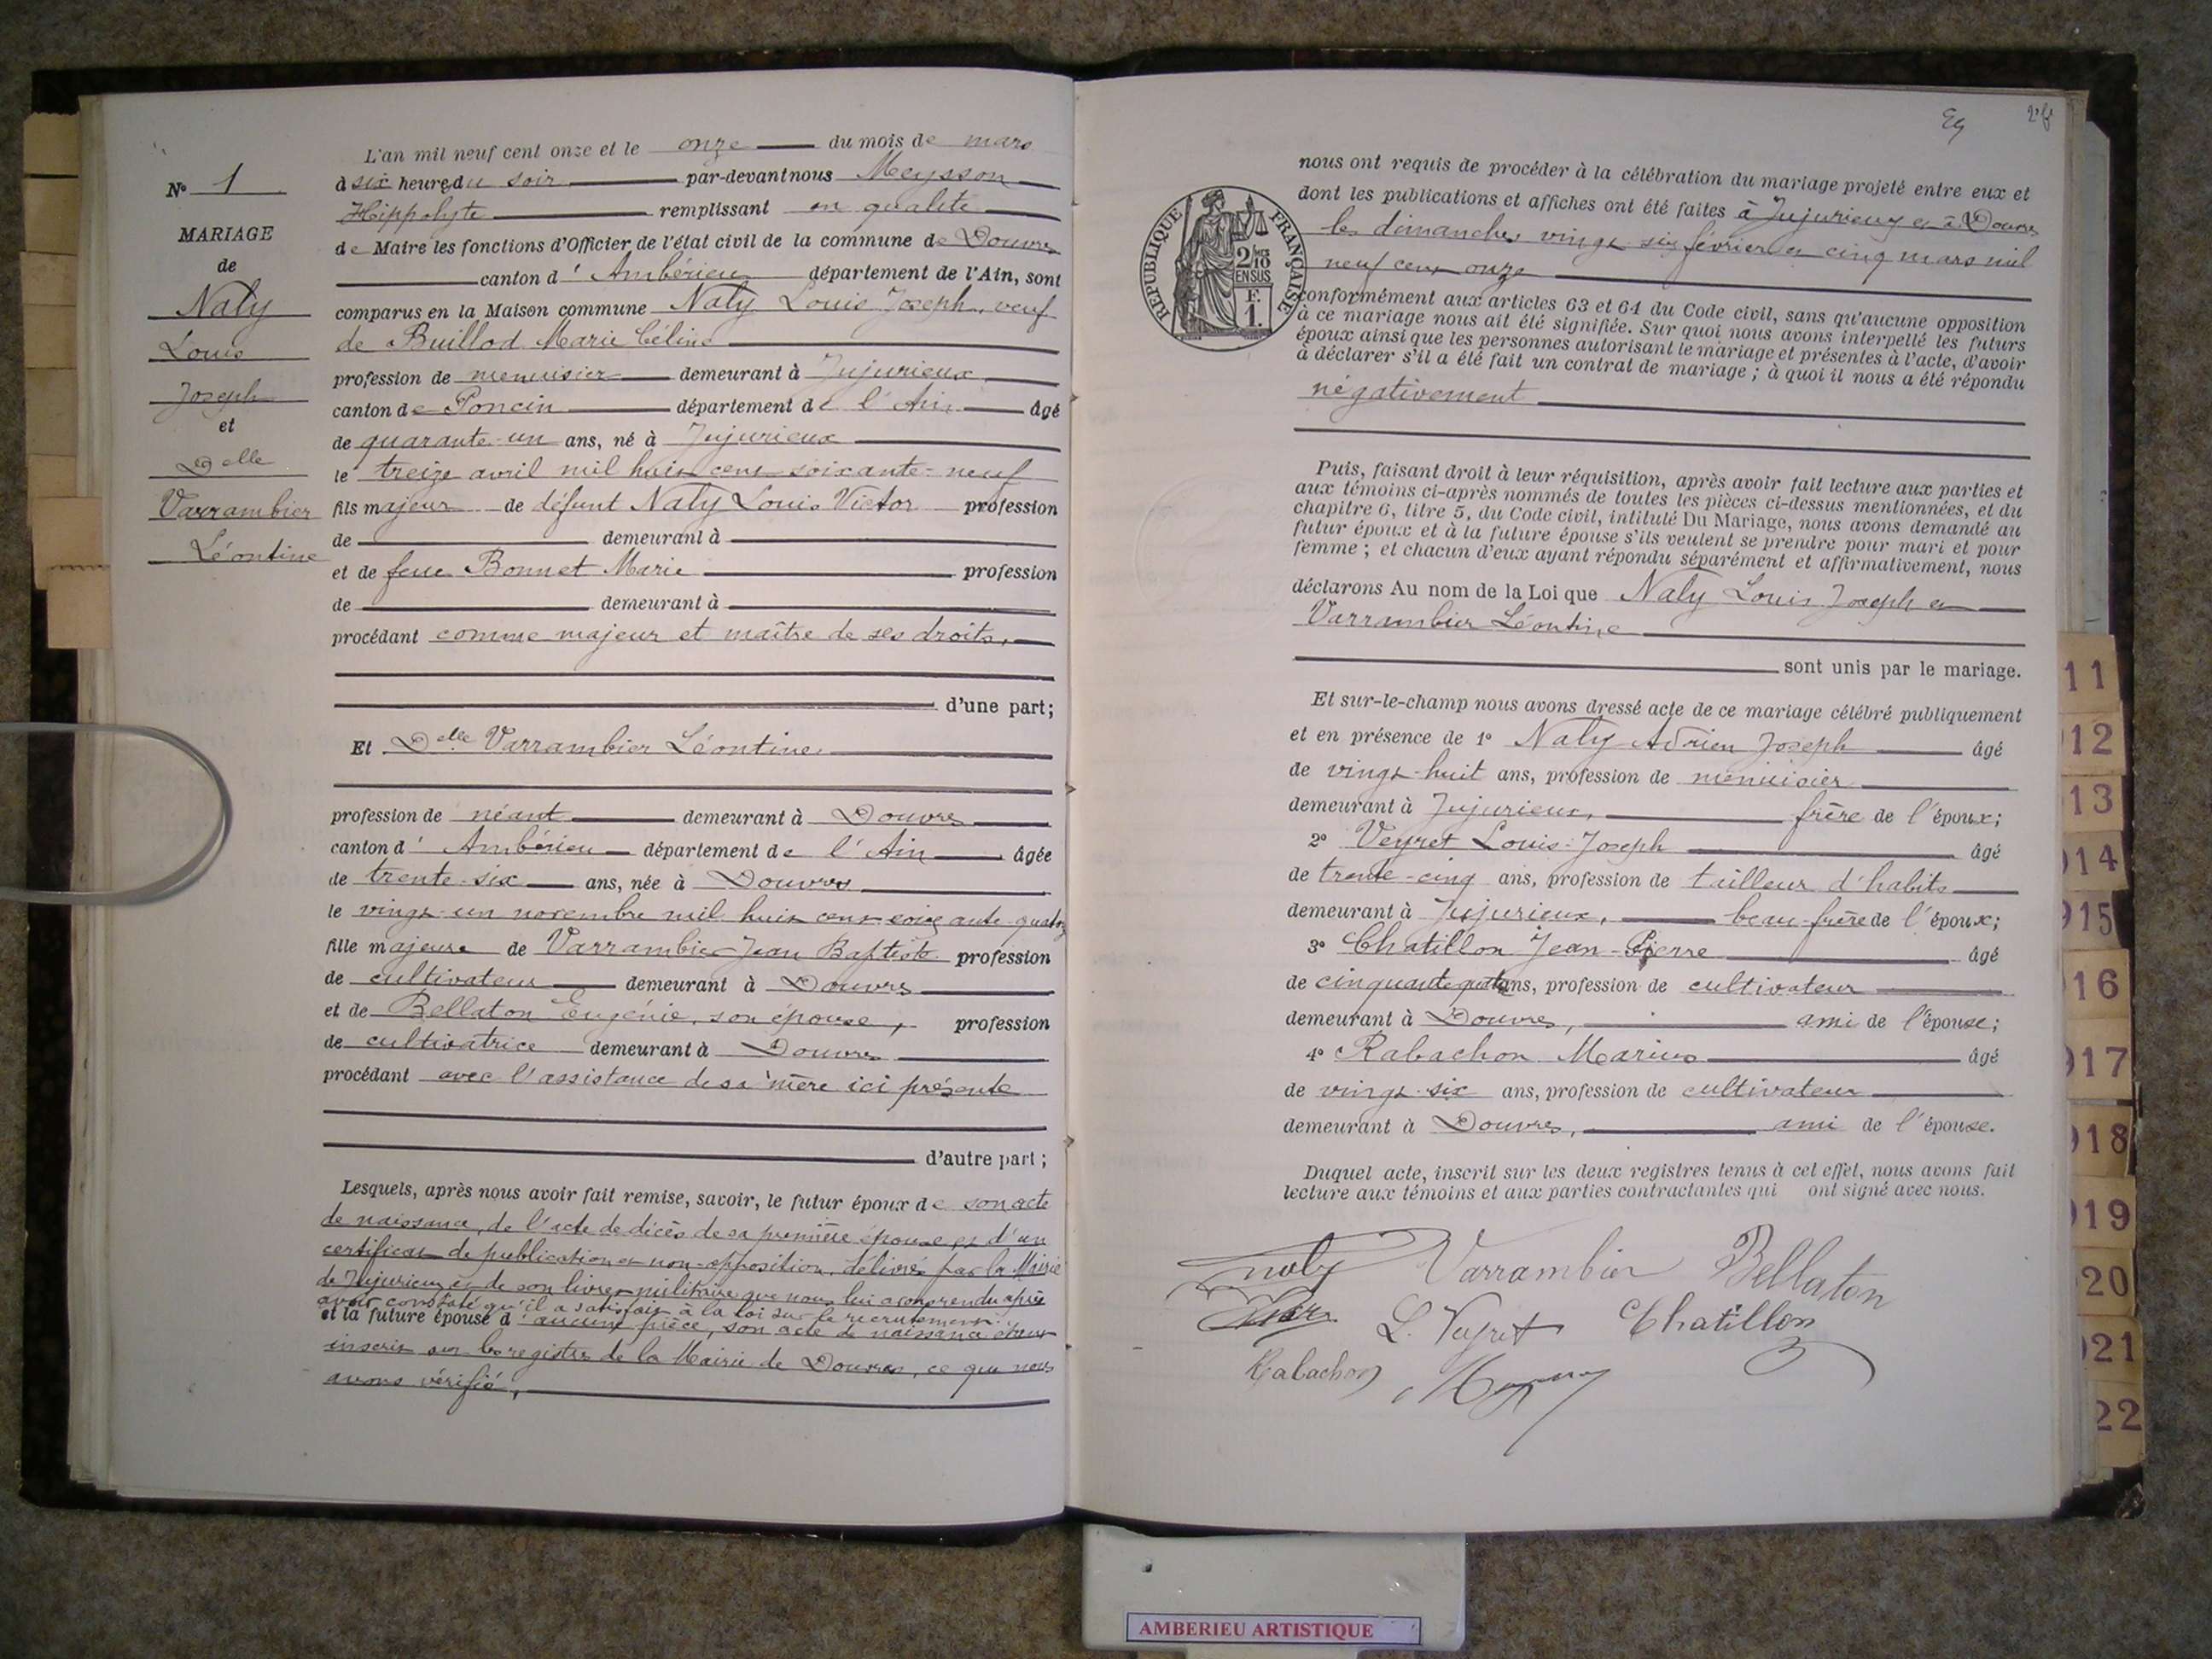 N° 1
MARIAGE
de
Naly
Louis
Joseph
et
Delle
Varrambier
Léontine
L'an mil neuf cent onze et le onze du mois de mars
à six heures du soir par-devant nous Meysson
Hippolyte remplissant en qualité
de Maire les fonctions d'Officier de l'état civil de la commune de Douvres
canton d'Ambérieu département de l'Ain, sont
comparus en la Maison commune Naly Louis Joseph, veuf
de Buillod Marie Céline
profession de menuisier demeurant à Jujurieux
canton de Poncin département de l'Ain âgé
de quarante-un ans, né à Jujurieux
le treize avril mil huit cent soixante-neuf
fils majeur de défunt Naly Louis Victor profession
de demeurant à
et de feue Bonnet Marie profession
de demeurant à
procédant comme majeur et maître de ses droits,
d'une part;
Et Delle Varrambier Léontine
profession de néant demeurant à Douvres
canton d'Ambérieu département de l'Ain âgée
de trente-six ans, née à Douvres
le vingt-un novembre mil huit cent soixante-quatorze
fille majeure de Varrambier Jean Baptiste profession
de cultivateur demeurant à Douvres
et de Bellaton Eugénie, son épouse, profession
de cultivatrice demeurant à Douvres
procédant avec l'assistance de sa mère ici présente
d'autre part;
Lesquels, après nous avoir fait remise, savoir, le futur époux de son acte
de naissance, de l'acte de décès de sa première épouse et d'un
certificat de publication et non-opposition, délivré par la Mairie
de Jujurieux et de son livret militaire que nous lui avons rendu après
avoir constaté qu'il a satisfait à la loi sur le recrutement
et la future épouse d'aucune pièce, son acte de naissance étant
inscrit sur les registres de la Mairie de Douvres, ce que nous
avons vérifié,
nous ont requis de procéder à la célébration du mariage projeté entre eux et
dont les publications et affiches ont été faites à Jujurieux et à Douvres
les dimanches vingt-six février et cinq mars mil
neuf cent onze
RÉPUBLIQUE FRANÇAISE
2/10
EN SUS
F.
1.
conformément aux articles 63 et 64 du Code civil, sans qu'aucune opposition
à ce mariage nous ait été signifiée. Sur quoi nous avons interpellé les futurs
époux ainsi que les personnes autorisant le mariage et présentes à l'acte, d'avoir
à déclarer s'il a été fait un contrat de mariage; à quoi il nous a été répondu
négativement
Puis, faisant droit à leur réquisition, après avoir fait lecture aux parties et
aux témoins ci-après nommés de toutes les pièces ci-dessus mentionnées, et du
chapitre 6, titre 5, du Code civil, intitulé Du Mariage, nous avons demandé au
futur époux et à la future épouse s'ils veulent se prendre pour mari et pour
femme; et chacun d'eux ayant répondu séparément et affirmativement, nous
déclarons Au nom de la Loi que Naly Louis Joseph et
Varrambier Léontine
sont unis par le mariage.
Et sur-le-champ nous avons dressé acte de ce mariage célébré publiquement
et en présence de 1° Naly Adrien Joseph âgé
de vingt-huit ans, profession de menuisier
demeurant à Jujurieux, frère de l'époux;
2° Veyret Louis-Joseph âgé
de trente-cinq ans, profession de tailleur d'habits
demeurant à Jujurieux, beau-frère de l'époux;
3° Chatillon Jean-Pierre âgé
de cinquante quatre ans, profession de cultivateur
demeurant à Douvres, ami de l'épouse;
4° Rabachon Marius âgé
de vingt-six ans, profession de cultivateur
demeurant à Douvres, ami de l'épouse.
Duquel acte, inscrit sur les deux registres tenus à cet effet, nous avons fait
lecture aux témoins et aux parties contractantes qui ont signé avec nous.
naly Varrambier Bellaton
L. Veyret Chatillon
Rabachon
11
12
13
14
15
16
17
18
19
20
21
22
AMBERIEU ARTISTIQUE